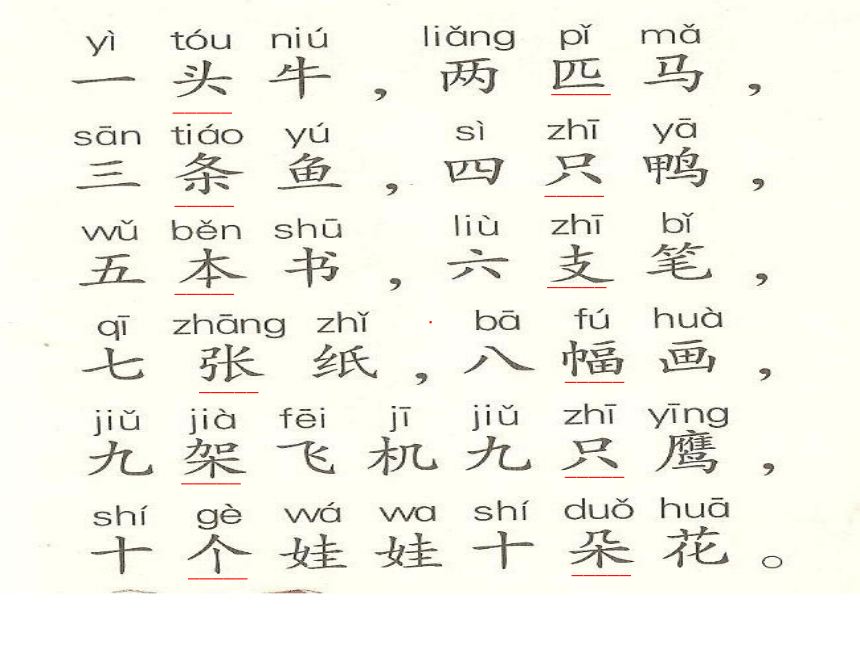 yì tóu niú liǎng pǐ mǎ
一头牛，两匹马，
sān tiáo yú sì zhī yā
三条鱼，四只鸭，
wǔ běn shū liù zhī bǐ
五本书，六支笔，
qī zhāng zhǐ bā fú huà
七张纸，八幅画，
jiǔ jià fēi jī jiǔ zhī yīng
九架飞机九只鹰，
shí gè wá wa shí duǒ huā
十个娃娃十朵花。